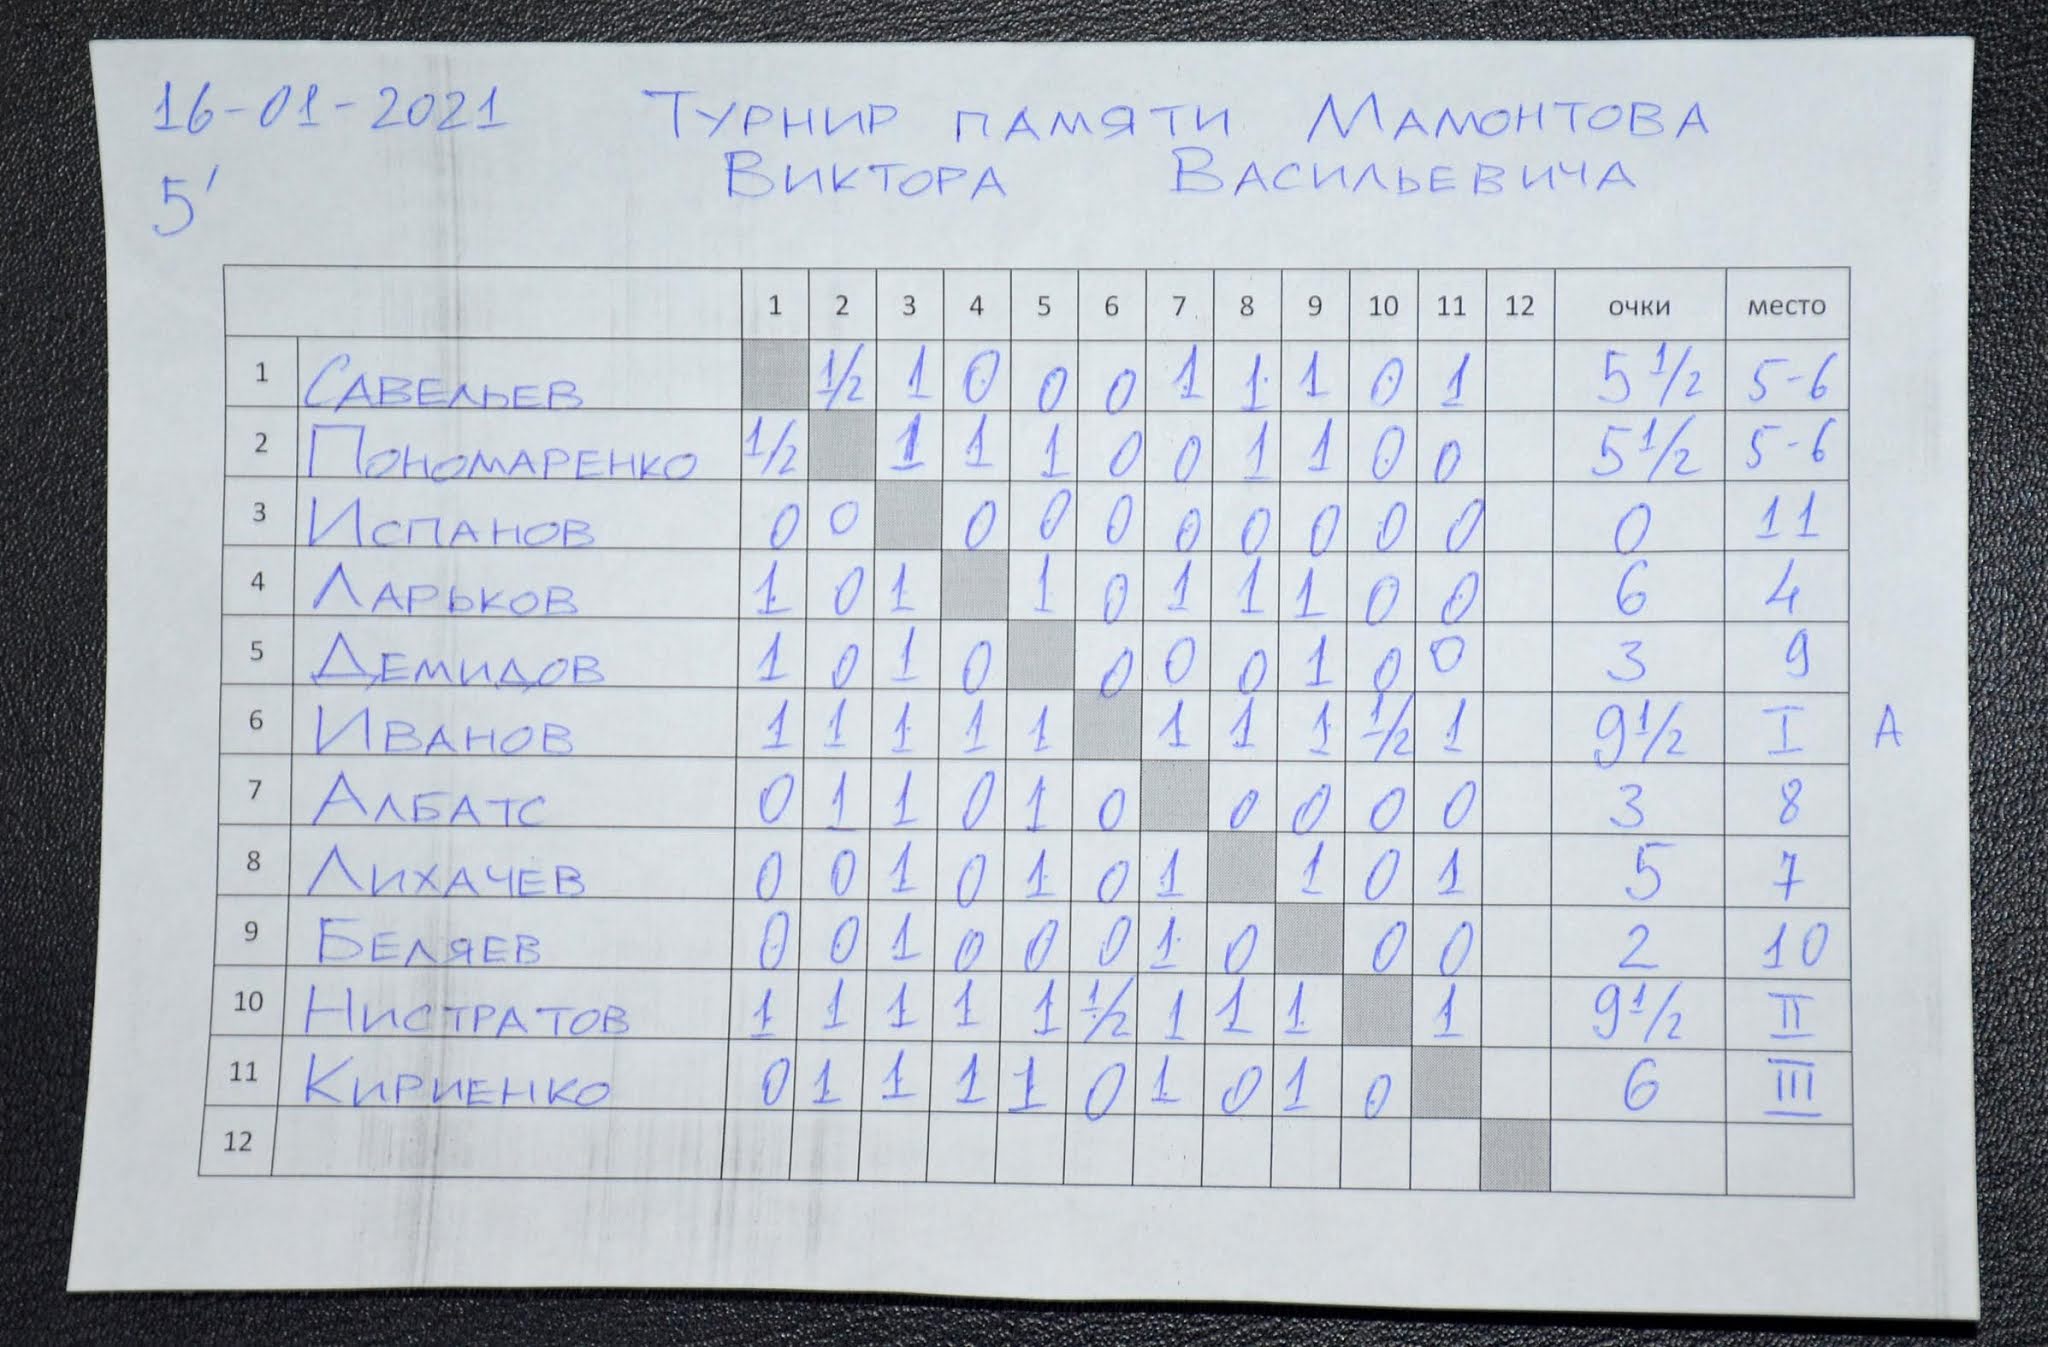 16-01-2021 Турнир памяти Мамонтова
5' Виктора Васильевича
1 2 3 4 5 6 7 8 9 10 11 12 очки место
1 Савельев 1/2 1 0 0 0 1 1 1 0 1 5 1/2 5-6
2 Пономаренко 1/2 1 1 1 0 0 1 1 0 0 5 1/2 5-6
3 Испанов 0 0 0 0 0 0 0 0 0 0 0 11
4 Ларьков 1 0 1 1 0 1 1 1 0 0 6 4
5 Демидов 1 0 1 0 0 0 0 1 0 0 3 9
6 Иванов 1 1 1 1 1 1 1 1 1/2 1 9 1/2 I А
7 Албатс 0 1 1 0 1 0 0 0 0 0 3 8
8 Лихачев 0 0 1 0 1 0 1 1 0 1 5 7
9 Беляев 0 0 1 0 0 0 1 0 0 0 2 10
10 Нистратов 1 1 1 1 1 1/2 1 1 1 1 9 1/2 II
11 Кириенко 0 1 1 1 1 0 1 0 1 0 6 III
12